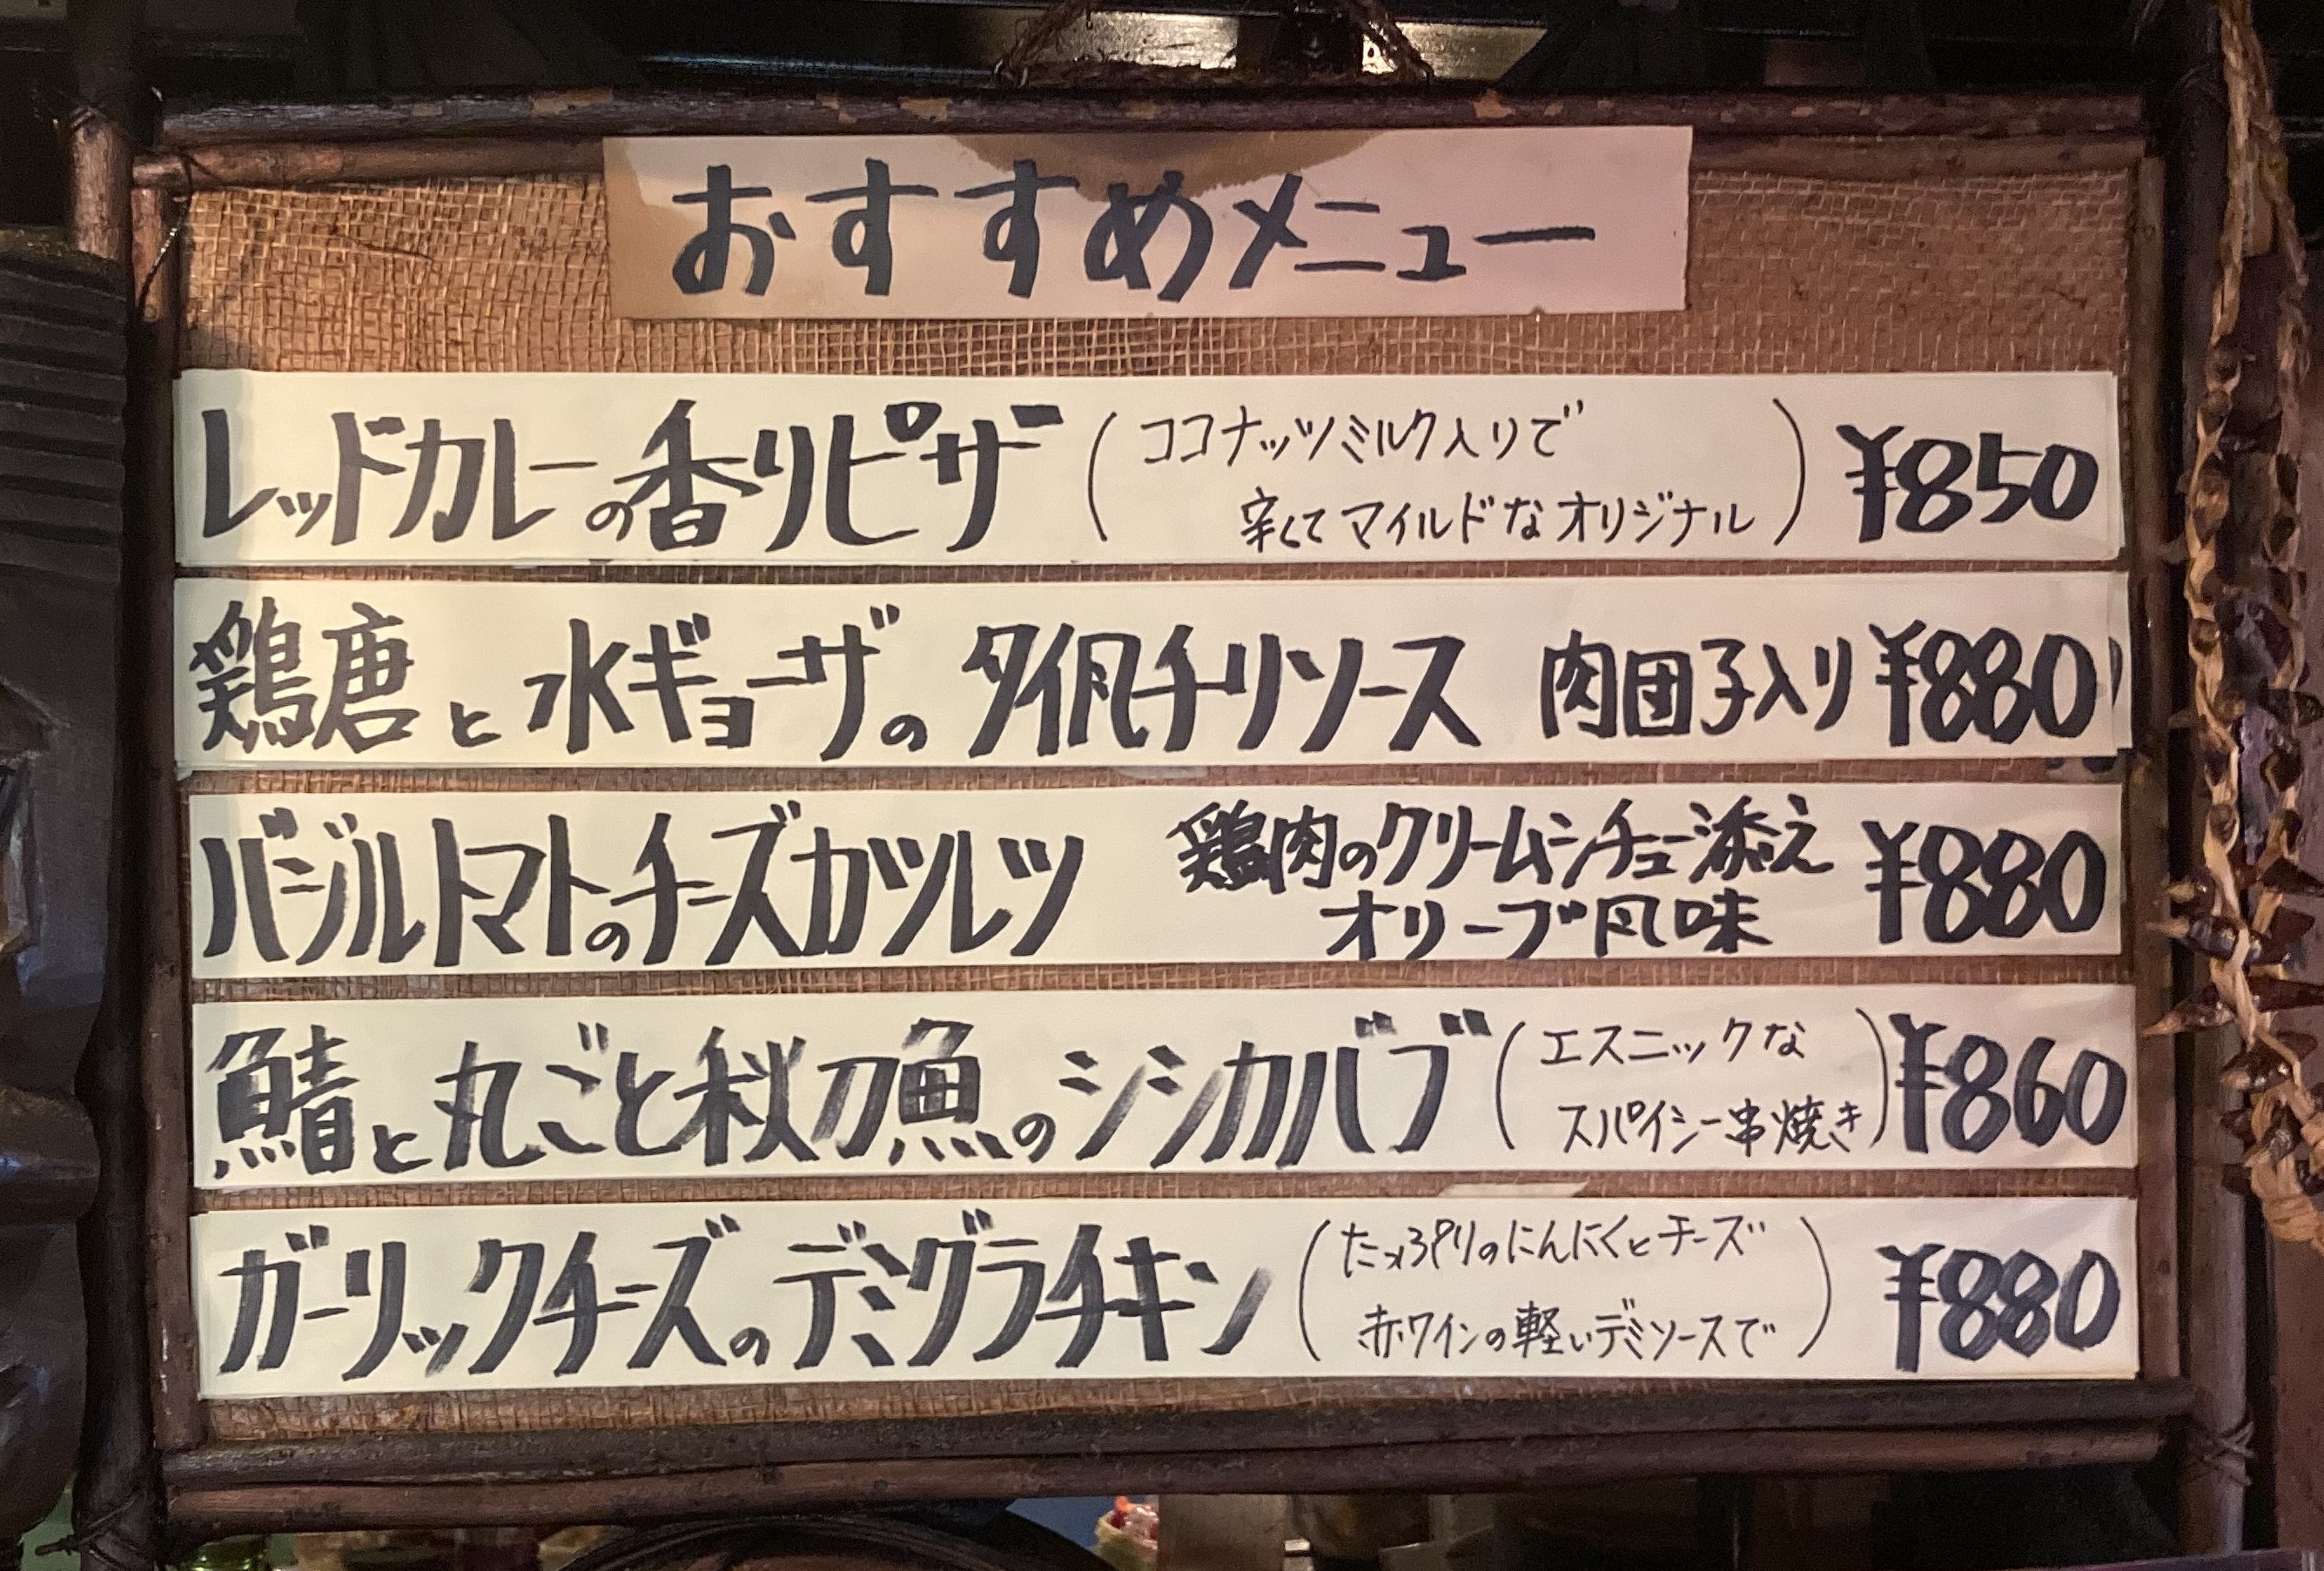 おすすめメニュー
レッドカレーの香りピザ（ココナッツミルク入りで
辛くてマイルドなオリジナル）¥850
鶏唐と水ギョーザのタイ風チリソース 肉団子入り ¥880
バジルトマトのチーズカツレツ 鶏肉のクリームシチュー添え
オリーブ風味 ¥880
鯖と丸ごと秋刀魚のシシカバブ（エスニックな
スパイシー串焼き）¥860
ガーリックチーズのデミグラチキン（たっぷりのにんにくとチーズ
赤ワインの軽いデミソースで）¥880